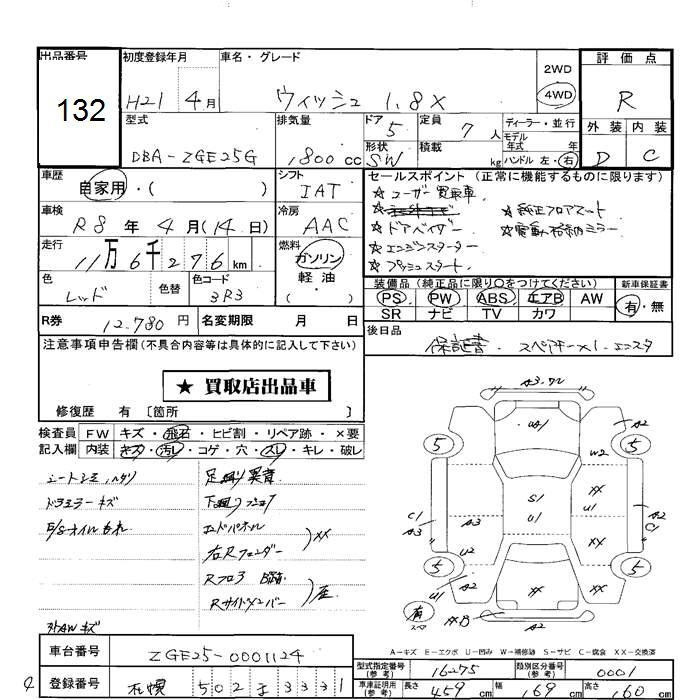 出品番号
132
初度登録年月
H21 4月
車名・グレード
ウィッシュ 1.8X
2WD
4WD
評価点
R
型式
DBA-ZGE25G
排気量
1800cc
ドア
5
形状
SW
定員
7人
積載
kg
ディーラー・並行
モデル年式 年
ハンドル 左・右
外装 内装
D C
車歴
自家用・( )
シフト
IAT
セールスポイント(正常に機能するものに限ります)
☆ユーザー買取車
☆純正フロアマット
☆ドアバイザー
☆電動格納ミラー
☆エンジンスターター
☆プッシュスタート
車検
R8年4月(14日)
冷房
AAC
走行
11万6千276km
燃料
ガソリン
軽油
( )
色
レッド
色替
色コード
3R3
装備品(純正品に限り○をつけてください)
PS PW ABS エアB AW
SR ナビ TV カワ
新車保証書
有・無
R券 12,780円
名変期限 月 日
後日品
保証書・スペアキー×1・エンスタ
注意事項申告欄(不具合内容等は具体的に記入して下さい)
★ 買取店出品車
修復歴 有〔箇所 〕
検査員記入欄
FW キズ・飛石・ヒビ割・リペア跡・×要
内装 キズ・汚レ・コゲ・穴・スレ・キレ・破レ
ドラミラーキズ
E/Gオイルもれ
外AWキズ
足廻り異音
エンドパネル
右Rフェンダー
XX
Rフロア
Rサイドメンバー
A3.W2
UA1
A2
W2
5
5
S1
U1
XX
U1
A2
C1
C1
A3
A3
U2
XX
XX
5
5
U1
A2
A2
XB
有
スペ
A-キズ E-エクボ U-凹み W-補修跡 S-サビ C-腐食 XX-交換済
車台番号
ZGE25-0001124
型式指定番号(参考)
16275
類別区分番号(参考)
0001
登録番号
札幌 502 ま 3331
車車証明用(参考)
長さ 459cm
幅 169cm
高さ 160cm